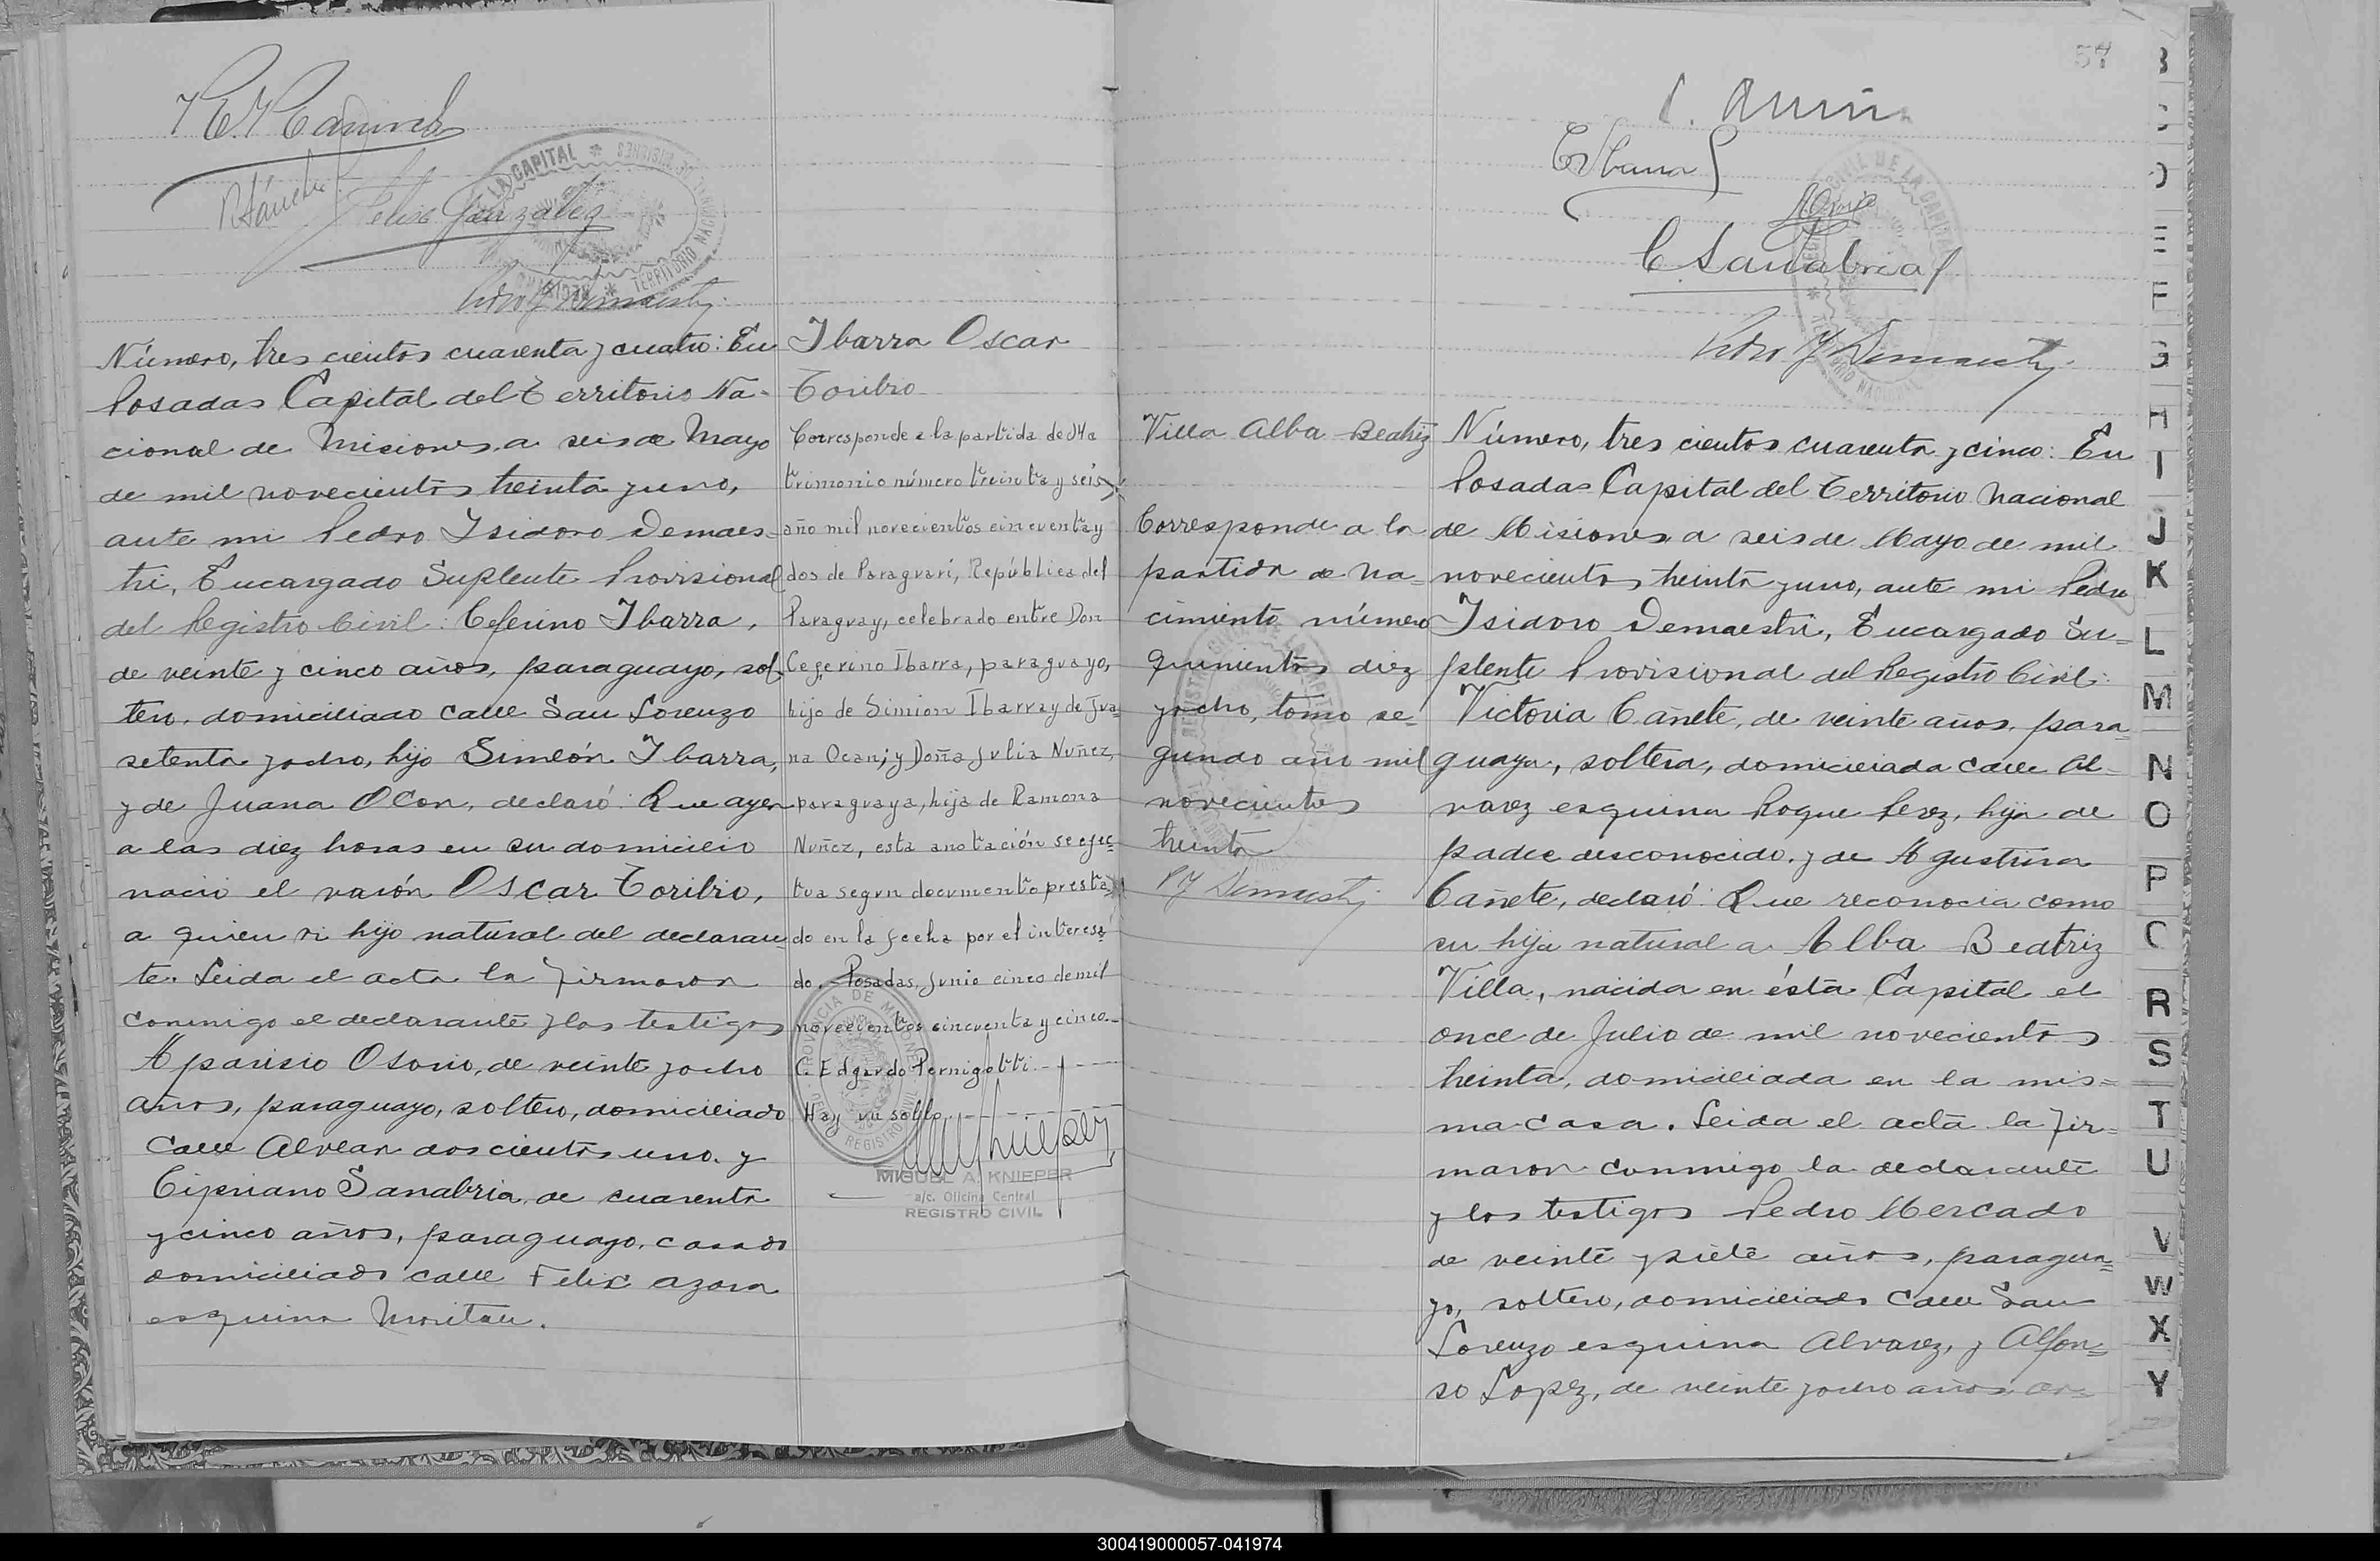 Felix Gonzalez
Número, tres cientos cuarenta y cuatro: En
Posadas Capital del Territorio Na-
cional de Misiones, a seis de Mayo
de mil novecientos treinta y uno,
ante mi Pedro Isidoro Demaes-
tri, Encargado Suplente Provisional
del Registro Civil: Ceferino Ibarra,
de veinte y cinco años, paraguayo, sol-
tero, domiciliado calle San Lorenzo
setenta y ocho, hijo Simeón Ibarra,
y de Juana Ocon, declaró: Que ayer
a las diez horas en su domicilio
nació el varón Oscar Toribio,
a quien vi hijo natural del declaran-
te. Leida el acta la firmaron
conmigo el declarante y los testigos
Aparisio Osorio, de veinte y ocho
años, paraguayo, soltero, domiciliado
calle Alvear dos cientos uno, y
Cipriano Sanabria, de cuarenta
y cinco años, paraguayo, casado
domiciliado calle Felix Azara
esquina
Ibarra Oscar
Toribio
Corresponde a la partida de Ma
trimonio número treinta y seis,
año mil novecientos cincuenta y
dos de Paraguarí, República del
Paraguay, celebrado entre Don
Ceferino Ibarra, paraguayo,
hijo de Simion Ibarra y de Jua-
na Ocan; y Doña Julia Nuñez,
paraguaya, hija de Ramona
Nuñez, esta anotación se efec-
tua segun documento presta-
do en la fecha por el interesa-
do. Posadas, junio cinco de mil
novecientos cincuenta y cinco.-
C. Edgardo Pernigotti.
Hay un sello.
MIGUEL A. KNIEPER
a/c. Oficina Central
REGISTRO CIVIL
57
C Sanabria
Villa Alba Beatriz
Corresponde a la
partida de Na-
cimiento número
quinientos diez
y ocho, tomo se-
gundo año mil
novecientos
treinta
P Y Demaestri
Número, tres cientos cuarenta y cinco: En
Posadas Capital del Territorio Nacional
de Misiones, a seis de Mayo de mil
novecientos treinta y uno, ante mi Pedro
Isidoro Demaestri, Encargado Su-
plente Provisional del Registro Civil:
Victoria Cañete, de veinte años, para-
guaya, soltera, domiciliada calle Al-
varez esquina Roque Perez, hija de
padre desconocido, y de Agustina
Cañete, declaró: Que reconocia como
su hija natural a Alba Beatriz
Villa, nacida en ésta Capital el
once de Julio de mil novecientos
treinta, domiciliada en la mis-
ma casa. Leida el acta la fir-
maron conmigo la declarante
y los testigos Pedro Mercado
de veinte y siete años, paragua-
yo, soltero, domiciliado calle San
Lorenzo esquina Alvarez, y Alfon-
so Lopez, de veinte y ocho años, ar-
B
C
D
E
F
G
H
I
J
K
L
M
N
O
P
C
R
S
T
U
V
W
X
Y
300419000057-041974